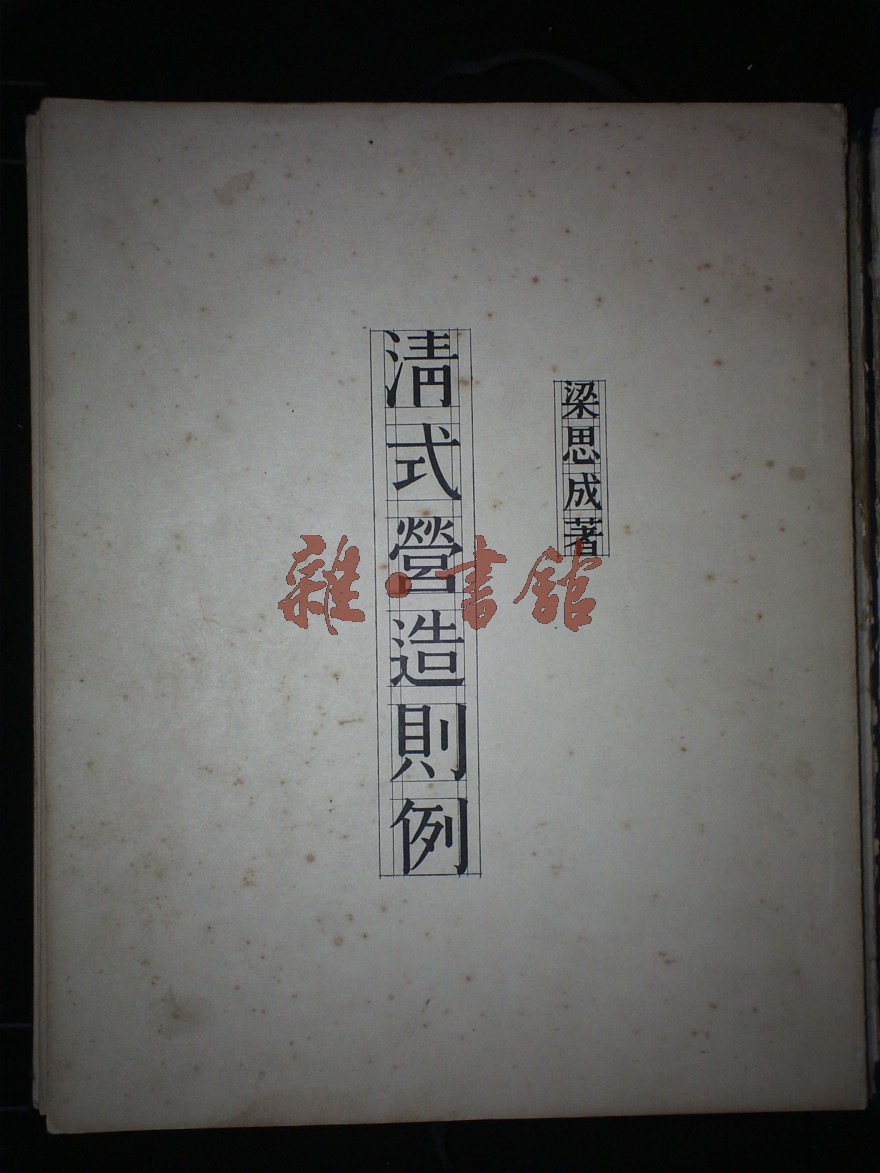 梁思成著
清式營造則例
雜·書館